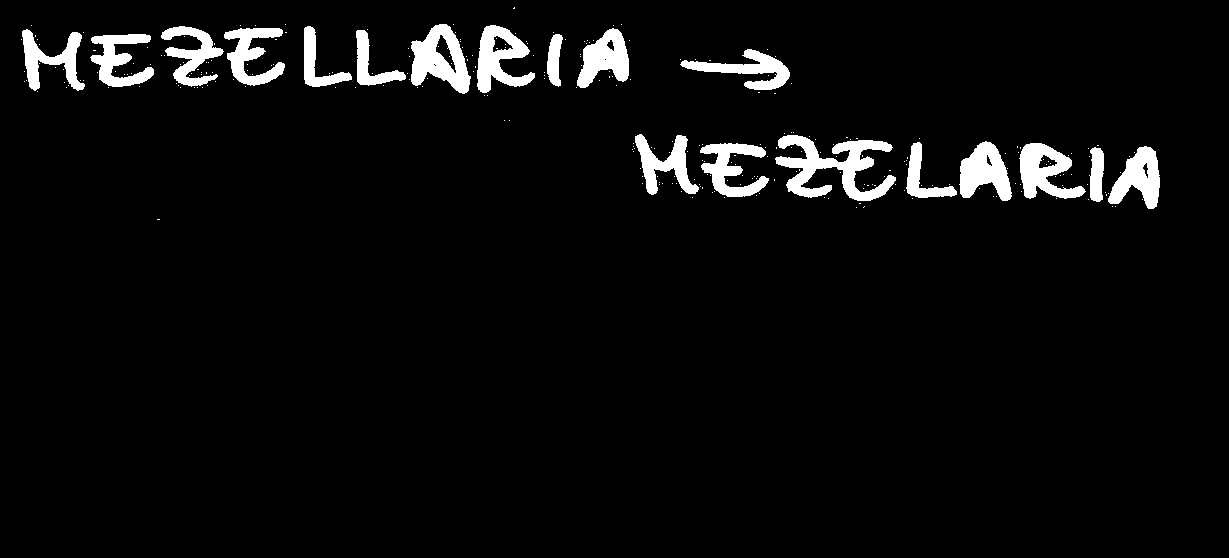 MEZELLARIA →
MEZELARIA